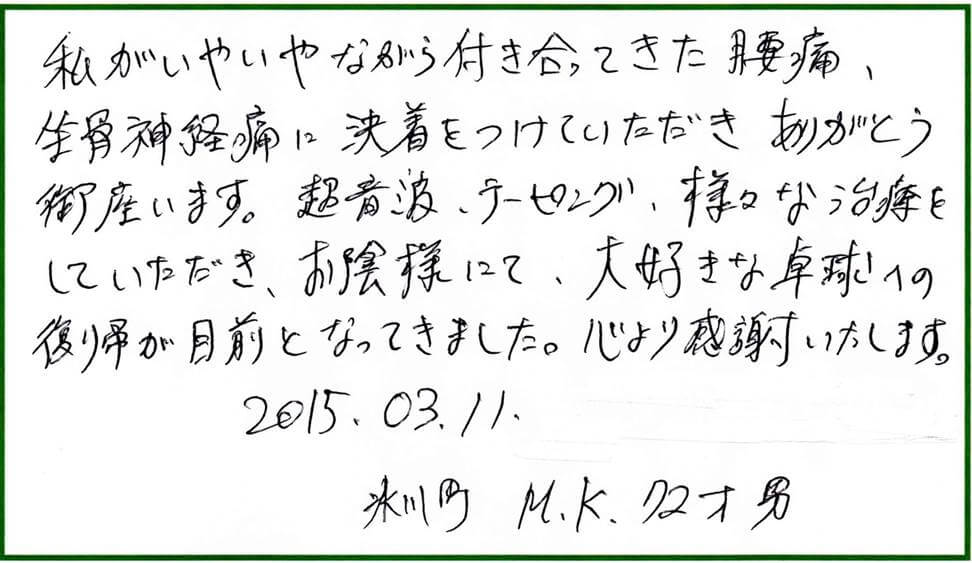 私がいやいやながら付き合ってきた腰痛、
坐骨神経痛に決着をつけていただきありがとう
御座います。超音波、テーピング、様々な治療を
していただき、お陰様にて、大好きな卓球への
復帰が目前となってきました。心より感謝いたします。
2015.03.11.
氷川町 M.K. 72才男